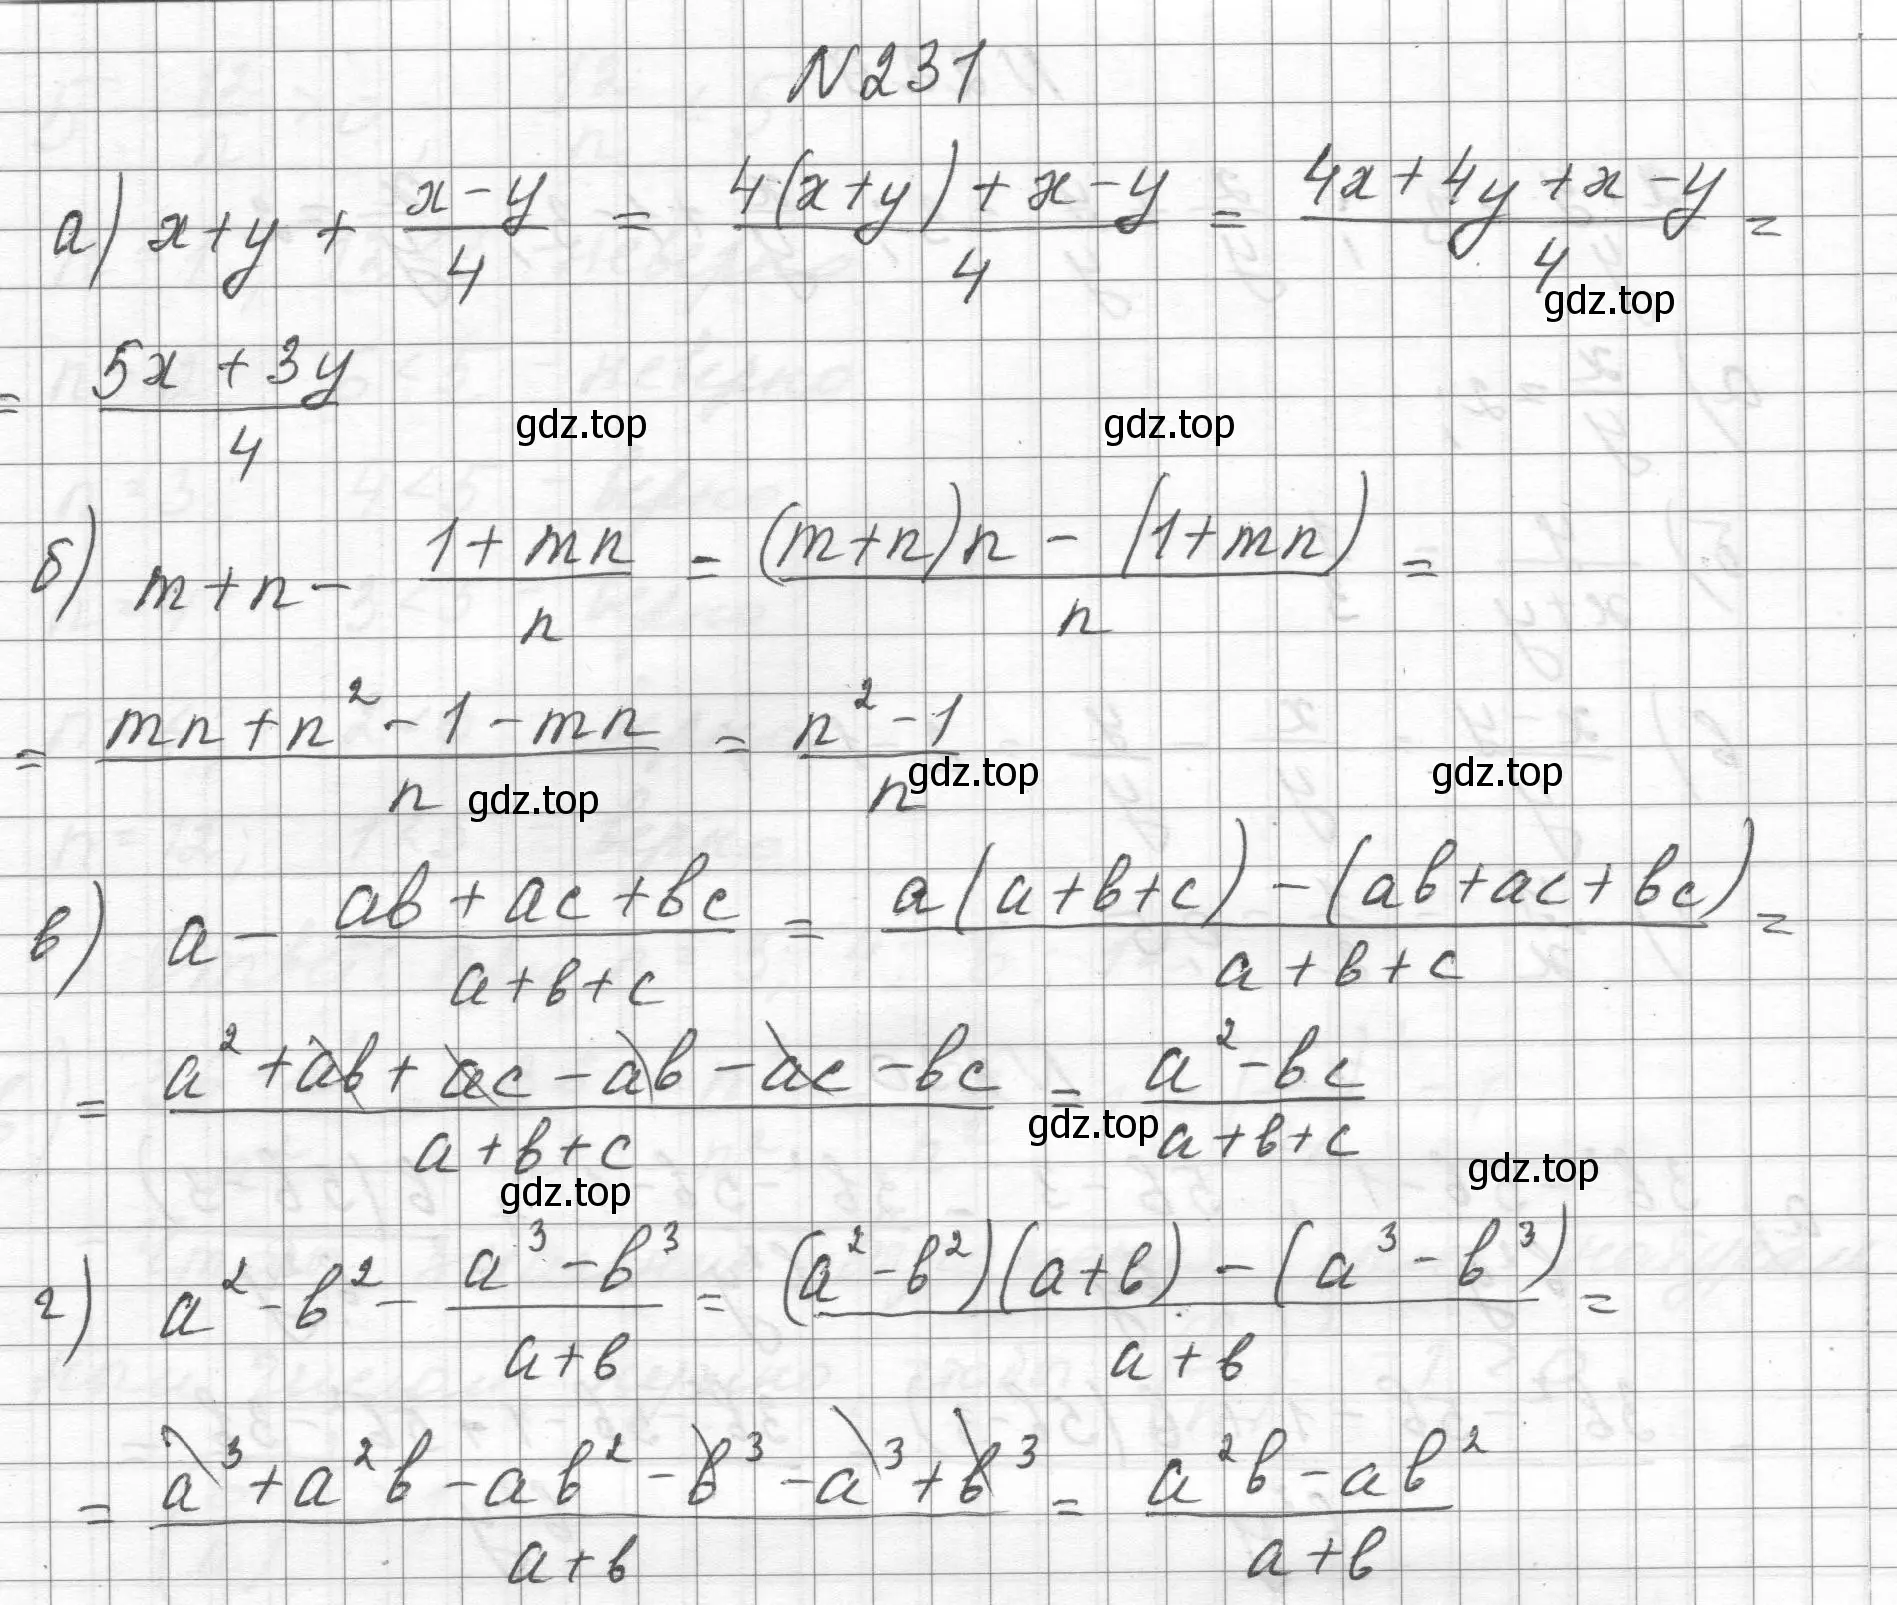 N231
а) x+y + (x-y)/4 = (4(x+y)+x-y)/4 = (4x+4y+x-y)/4 =
gdz.top
= (5x+3y)/4
gdz.top gdz.top
б) m+n - (1+mn)/n = ((m+n)n - (1+mn))/n =
= (mn+n²-1-mn)/n = (n²-1)/n
gdz.top gdz.top gdz.top
в) a - (ab+ac+bc)/(a+b+c) = (a(a+b+c)-(ab+ac+bc))/(a+b+c) =
= (a²+ab+ac-ab-ac-bc)/(a+b+c) = (a²-bc)/(a+b+c)
gdz.top gdz.top gdz.top
г) a²-b² - (a³-b³)/(a+b) = ((a²-b²)(a+b)-(a³-b³))/(a+b) =
= (a³+a²b-ab²-b³-a³+b³)/(a+b) = (a²b-ab²)/(a+b)